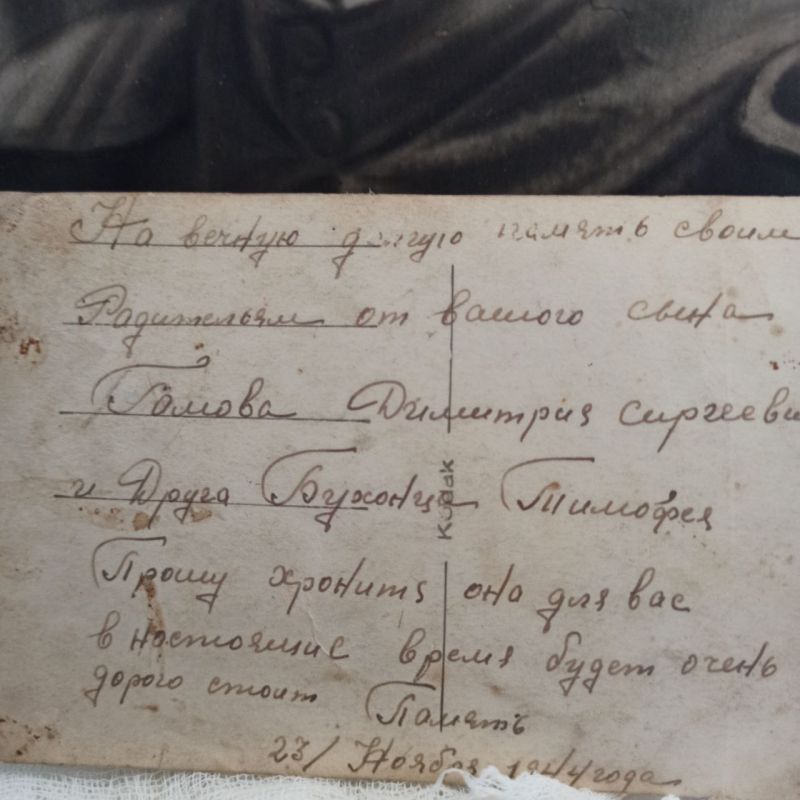 На вечную долгую память своим
Радительям от вашого сына
Гамова Димитрия Сиргееви
и Друга Бухонца Тимофея
Kodak
Прошу хронитя она для вас
в настоящие время будет очень
дорого стоит Память
23/ Ноября 1944 года